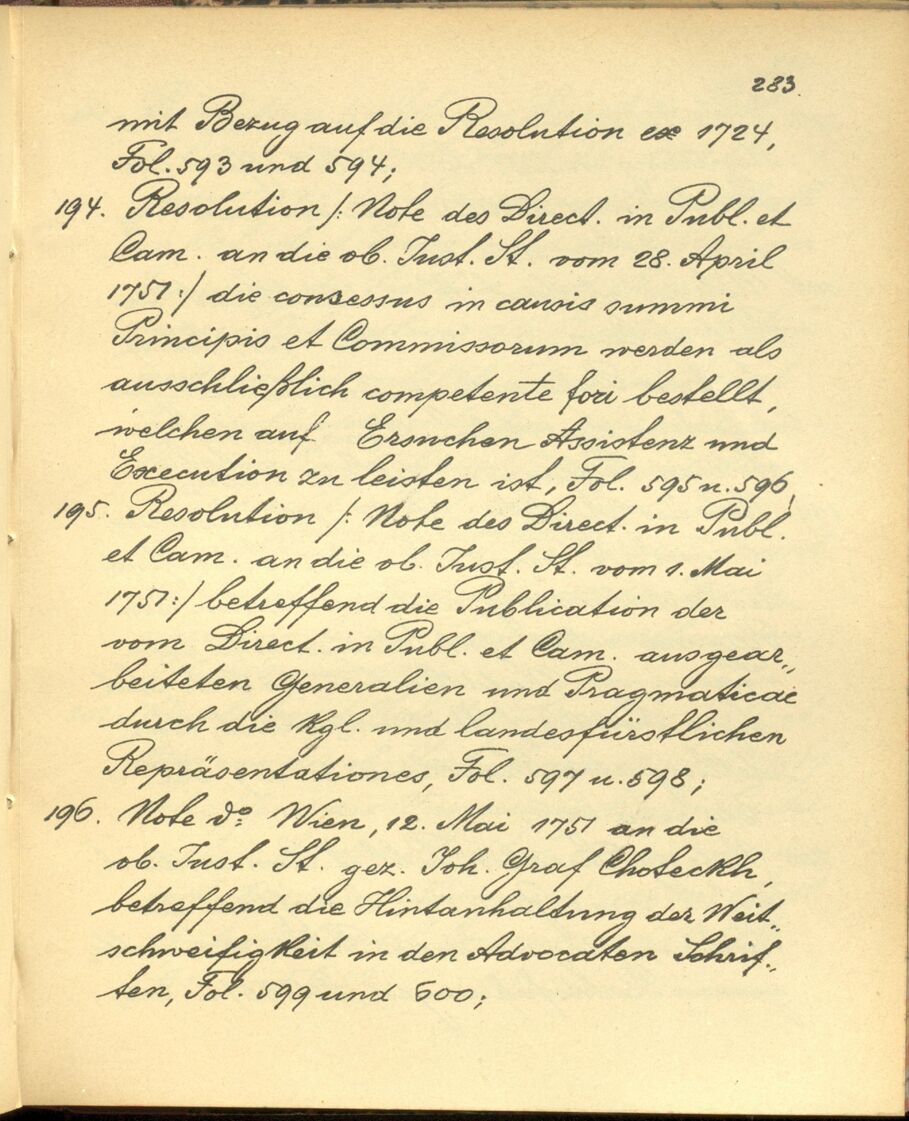 283.
mit Bezug auf die Resolution ex 1724,
Fol. 593 und 594;
194. Resolution /: Note des Direct. in Publ. et
Cam. an die ob. Just. St. vom 28. April
1751 :/ die consessus in causis summi
Principis et Commissorum werden als
ausschließlich competente fori bestellt,
welchen auf Ersuchen Assistenz und
Execution zu leisten ist, Fol. 595 u. 596,
195. Resolution /: Note des Direct. in Publ.
et Cam. an die ob. Just. St. vom 1. Mai
1751 :/ betreffend die Publication der
vom Direct. in Publ. et Cam. ausgear„
beiteten Generalien und Pragmaticae
durch die Kgl. und landesfürstlichen
Repräsentationes, Fol. 597 u. 598;
196. Note do: Wien, 12. Mai 1751 an die
ob. Just. St. gez. Joh. Graf Choteckh,
betreffend die Hintanhaltung der Weit„
schweifigkeit in den Advocaten Schrif„
ten, Fol. 599 und 600;